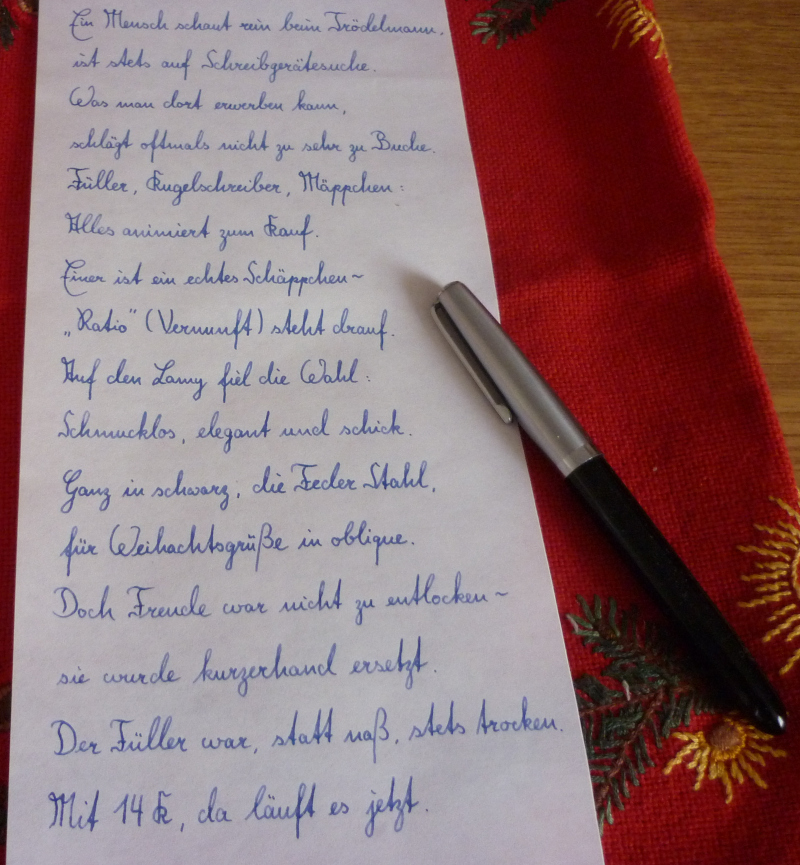 Ein Mensch schaut rein beim Trödelmann,
ist stets auf Schreibgerätesuche.
Was man dort erwerben kann,
schlägt oftmals nicht zu sehr zu Buche.
Füller, Kugelschreiber, Mäppchen:
Alles animiert zum Kauf.
Einer ist ein echtes Schäppchen~
„Ratio" (Vernunft) steht drauf.
Auf den Lamy fiel die Wahl:
Schmucklos, elegant und schick.
Ganz in schwarz, die Feder Stahl,
für Weihachtsgrüße in oblique.
Doch Freude war nicht zu entlocken~
sie wurde kurzerhand ersetzt.
Der Füller war, statt naß, stets trocken.
Mit 14 K, da läuft es jetzt.